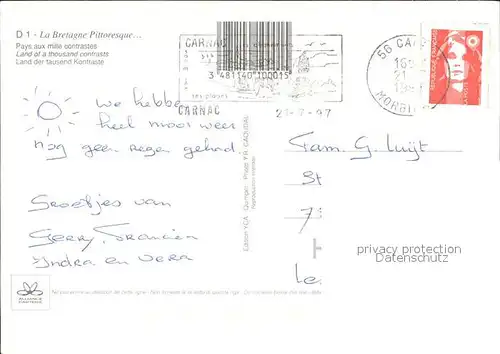 D 1 - La Bretagne Pittoresque...
Pays aux mille contrastes
Land of a thousand contrasts
Land der tausend Kontraste
CARNAC
3 481140 100015
ses plages
CARNAC
21-7-97
56 CA
16
21
MORBI
We hebben
heel mooi weer
nog geen regen gehad
Groetjes van
Gerry, Francien
Indra en Vera
Fam. G. Luijt
St
7
H
Le
Edition YCA - Quimper - Photo Y.R. CAOUDAL
Reproduction interdite
privacy protection
Datenschutz
ALLIANCE